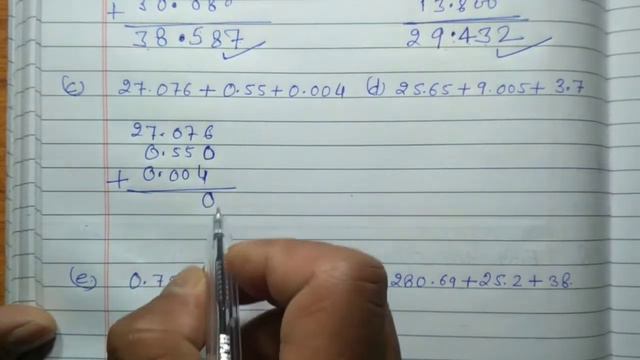 + 30.080
38.587
13.800
29.432
(c) 27.076 + 0.55 + 0.004 (d) 25.65 + 9.005 + 3.7
27.076
0.550
+ 0.004
0
(e) 0.75
280.69 + 25.2 + 38.